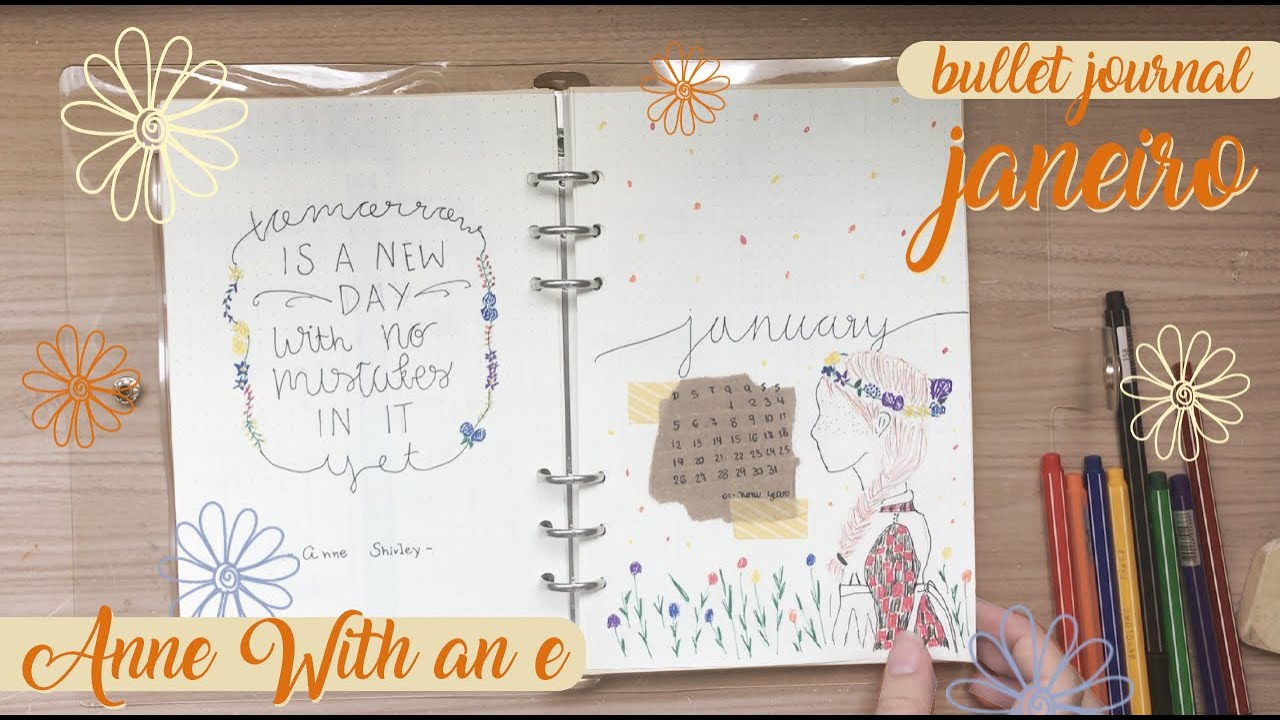 bullet journal
janeiro
tomorrow
IS A NEW
DAY
with no
mistakes
IN IT
yet
Anne Shirley-
january
D S T Q Q S S
1 2 3 4
5 6 7 8 9 10 11
12 13 14 15 16 17 18
19 20 21 22 23 24 25
26 27 28 29 30 31
01- new year
Anne With an e